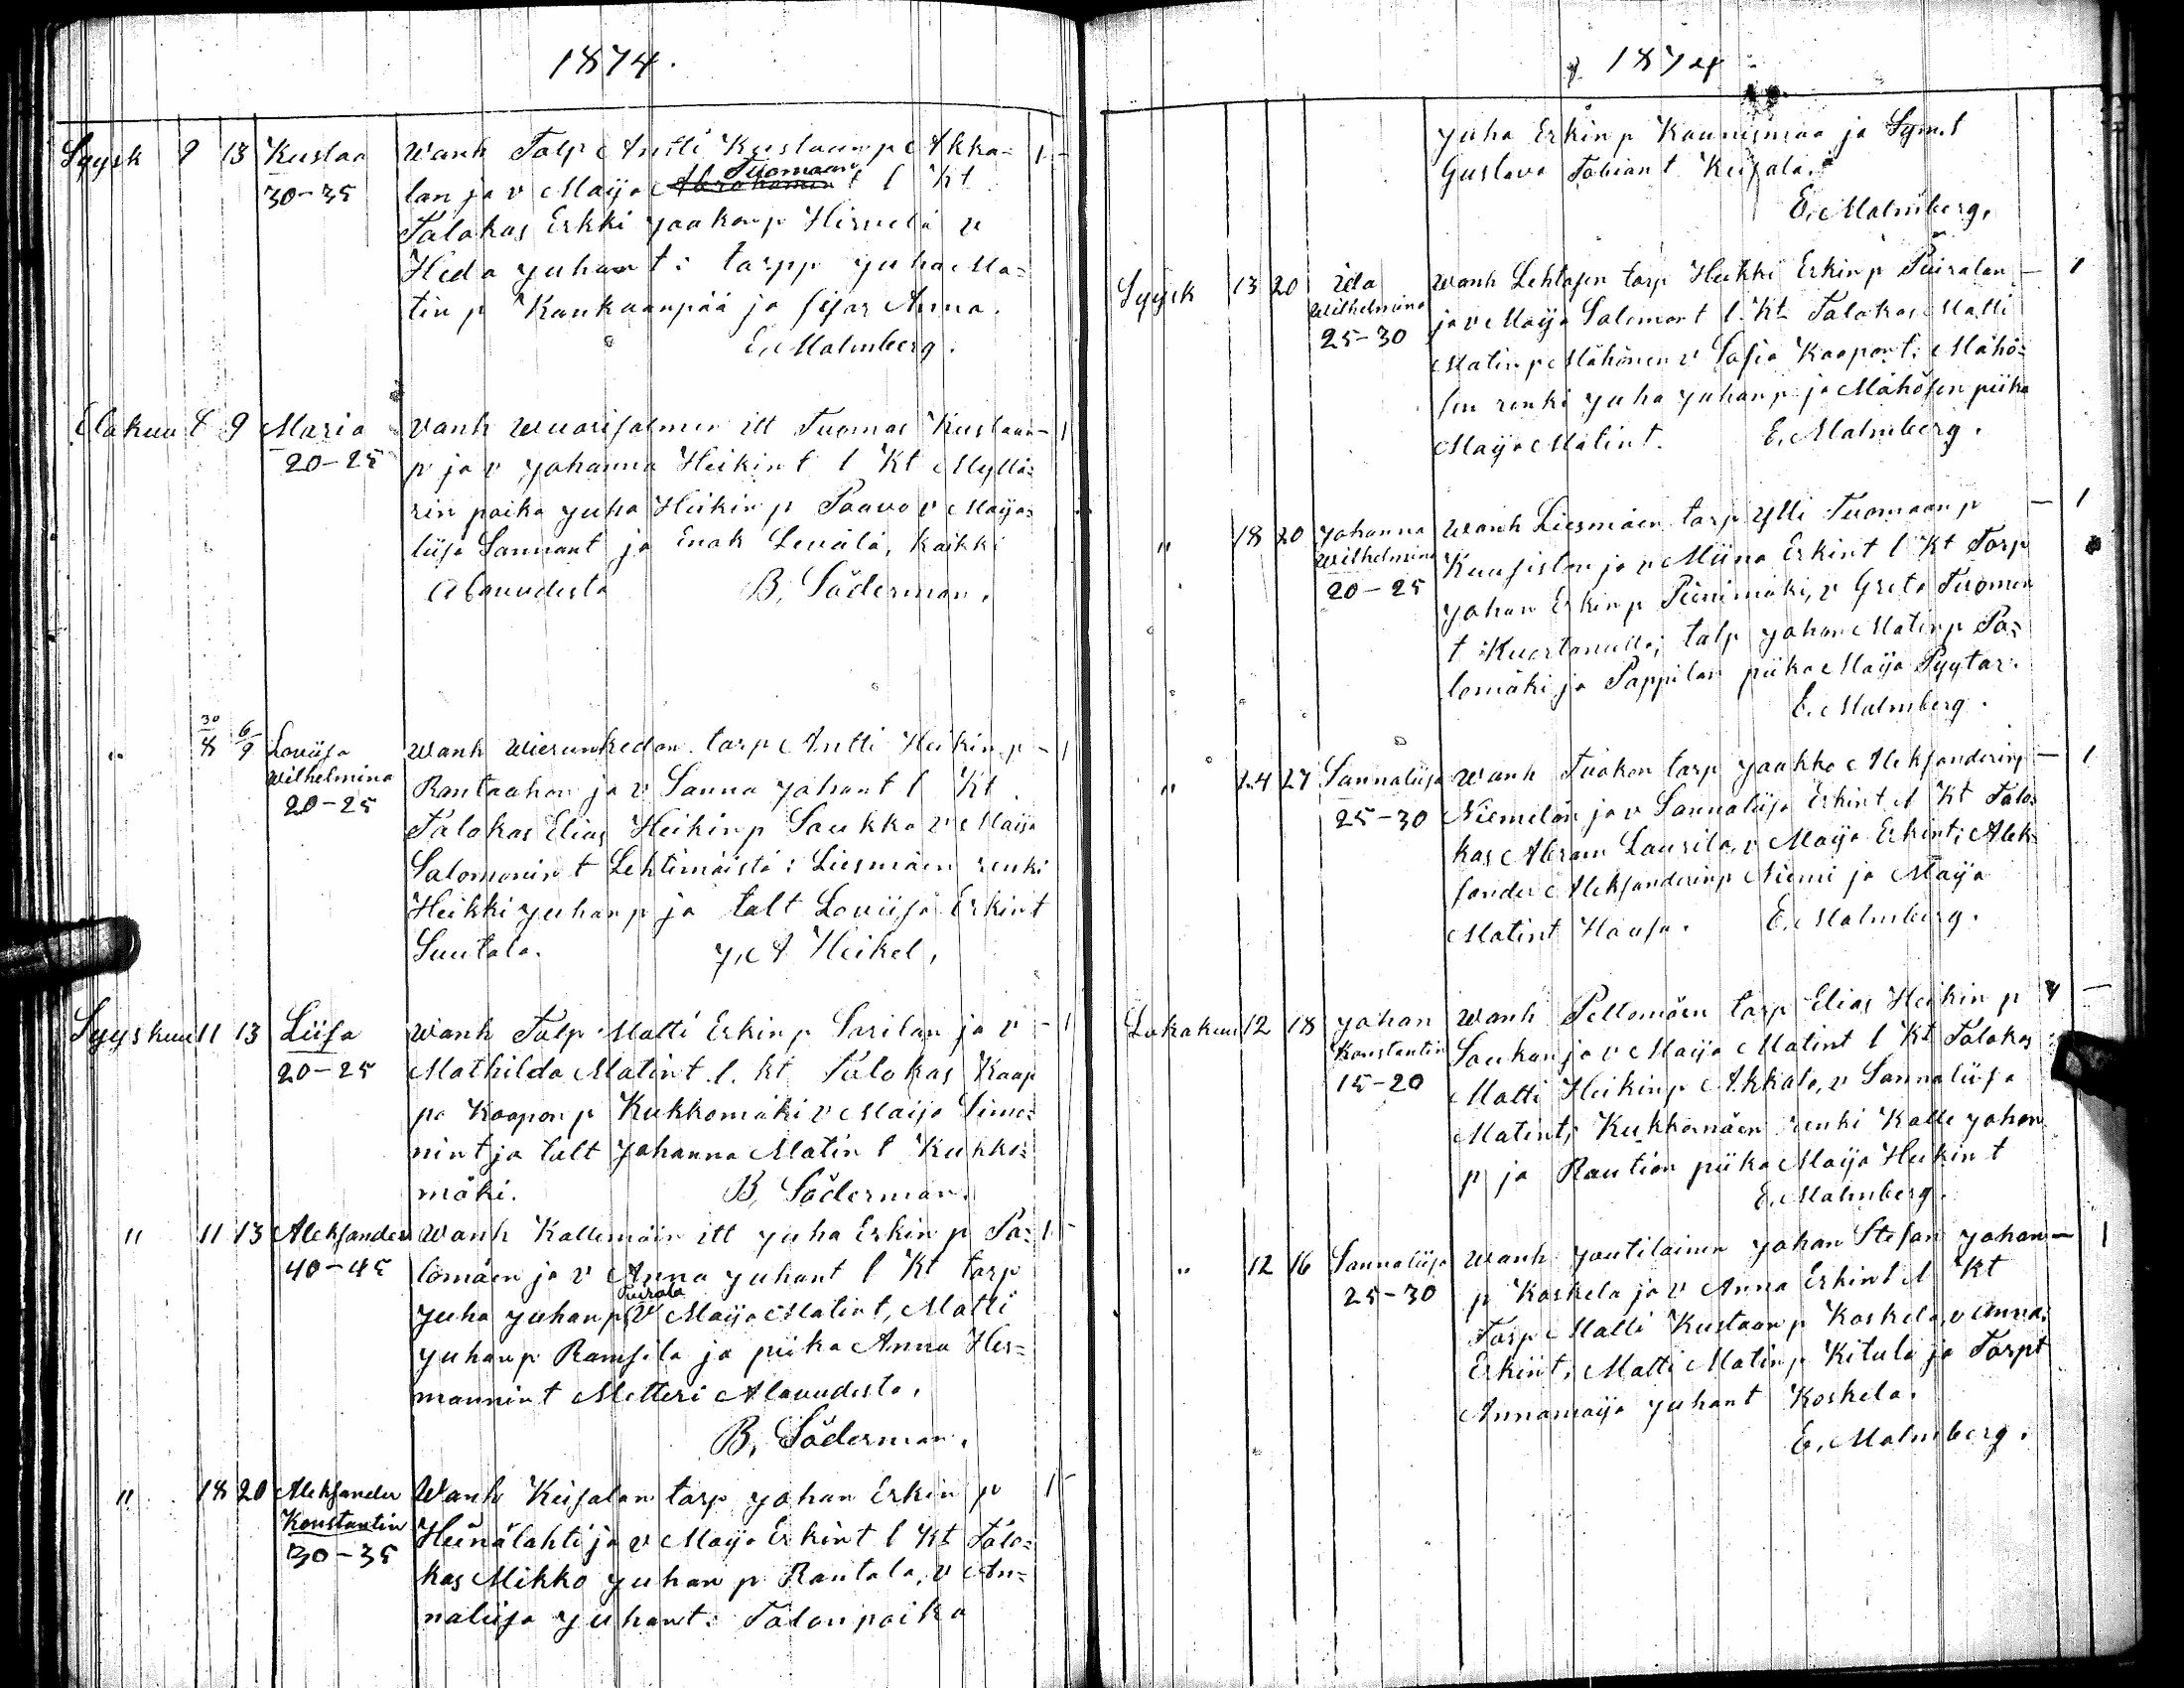 1874.
Syysk 9 13 Kustaa Wanh Talp Antti Kustaanp Akka= 1 -
30-35 lan ja v Maija Abrahamin Tuomaan t l Kt
Talokas Erkki Jaakonp Hirvelä v
Heda Juhant: tarpp Juha Ma=
tinp Kankaanpää ja sisar Anna.
E. Malmberg.
Elokuu 8 9 Maria Vanh Wuorisalmen itt Tuomas Kustaan - 1
20-25 p ja v Johanna Heikint l Kt Myllä=
rin poika Juha Heikinp Paavo v Maija=
liisa Sannant ja Enok Levälä, kaikki
Alavudesta B. Söderman.
" 30/8 6/9 Loviisa Wanh Wierunkedon tarp Antti Heikinp - 1
Wilhelmina Rantaahon ja v Sanna Johant l Kt
20-25
Talokas Elias Heikinp Saukko v Maija
Salomonint Lehtimäistä: Liesmäen renki
Heikki Juhanp ja talt Loviisa Erkint
Suutala. J. A Heikel.
Syyskuu 11 13 Liisa Wanh Talp Matti Erkinp Sarilan ja v - 1
20-25 Mathilda Matint l. kt Talokas Kaap
po Kaaponp Kukkomäki v Maija Simo=
nint ja talt Johanna Matint Kukko=
mäki. B. Söderman.
" 11 13 Aleksander Wanh Kallemäin itt Juha Erkinp Pa= 1 -
40-45 lomäen ja v Anna Juhant l Kt tarp
Juha Juhanp Puirala v Maija Matint, Matti
Juhanp Ramsila ja piika Anna Her=
mannint Metteri Alavudesta.
B. Söderman.
" 18 20 Aleksander Wanh Keisalan tarp Johan Erkinp 1 -
Konstantin Heinälahti ja v Maija Erkint l Kt Talo=
30-35
kas Mikko Juhanp Rantala, v An=
naliisa Juhant: Talonpoika
1874
Juha Erkinp Kaunismaa ja
Gustava Tobiant Keisala.
E. Malmberg.
Syysk 13 20 Ida Wanh Lehtosen tarp Heikki Erkinp Puiralan - 1
Wilhelmina ja v Maija Salomont l. Kt Talokas Matti
25-30
Matinp Mähönen v Sofia Kaapont: Mähö=
sen renki Juha Juhanp ja Mähösen piika
Maija Matint. E. Malmberg.
" 18 20 Johanna Wanh Liesmäen tarp Ylli Tuomaanp - 1
Wilhelmina Kuusiston ja v Miina Erkint l Kt Tarp
20-25
Johan Erkinp Pienimäki, v Greta Tuoman
t Kuortaneelta; talp Johan Matinp Pa=
lomäki ja Pappilan piika Maija Pyytar.
E. Malmberg.
" 24 27 Sannaliisa Wanh Tuokon tarp Jaakko Aleksanderinp - 1
25-30 Niemelän ja v Sannaliisa Erkint l Kt Talo=
kas Abram Laurila, v Maija Erkint; Alek=
sander Aleksanderinp Niemi ja Maija
Matint Haasa. E. Malmberg.
Lokakuu 12 18 Johan Wanh Peltomäen tarp Elias Heikinp 1 -
Konstantin Saukon ja v Maija Matint l Kt Talokas
15-20
Matti Heikinp Akkala, v Sannaliisa
Matint; Kukkomäen renki Kalle Johan
p ja Raution piika Maija Heikint
E. Malmberg.
" 12 16 Sannaliisa Wanh Joutilainen Johan Stefan Johan - 1
25-30 p Koskela ja v Anna Erkint l Kt
Tarp Matti Kustaanp Koskela, v Anna
Erkint, Matti Matinp Kitula ja Tarpt
Annamaija Juhant Koskela.
E. Malmberg.